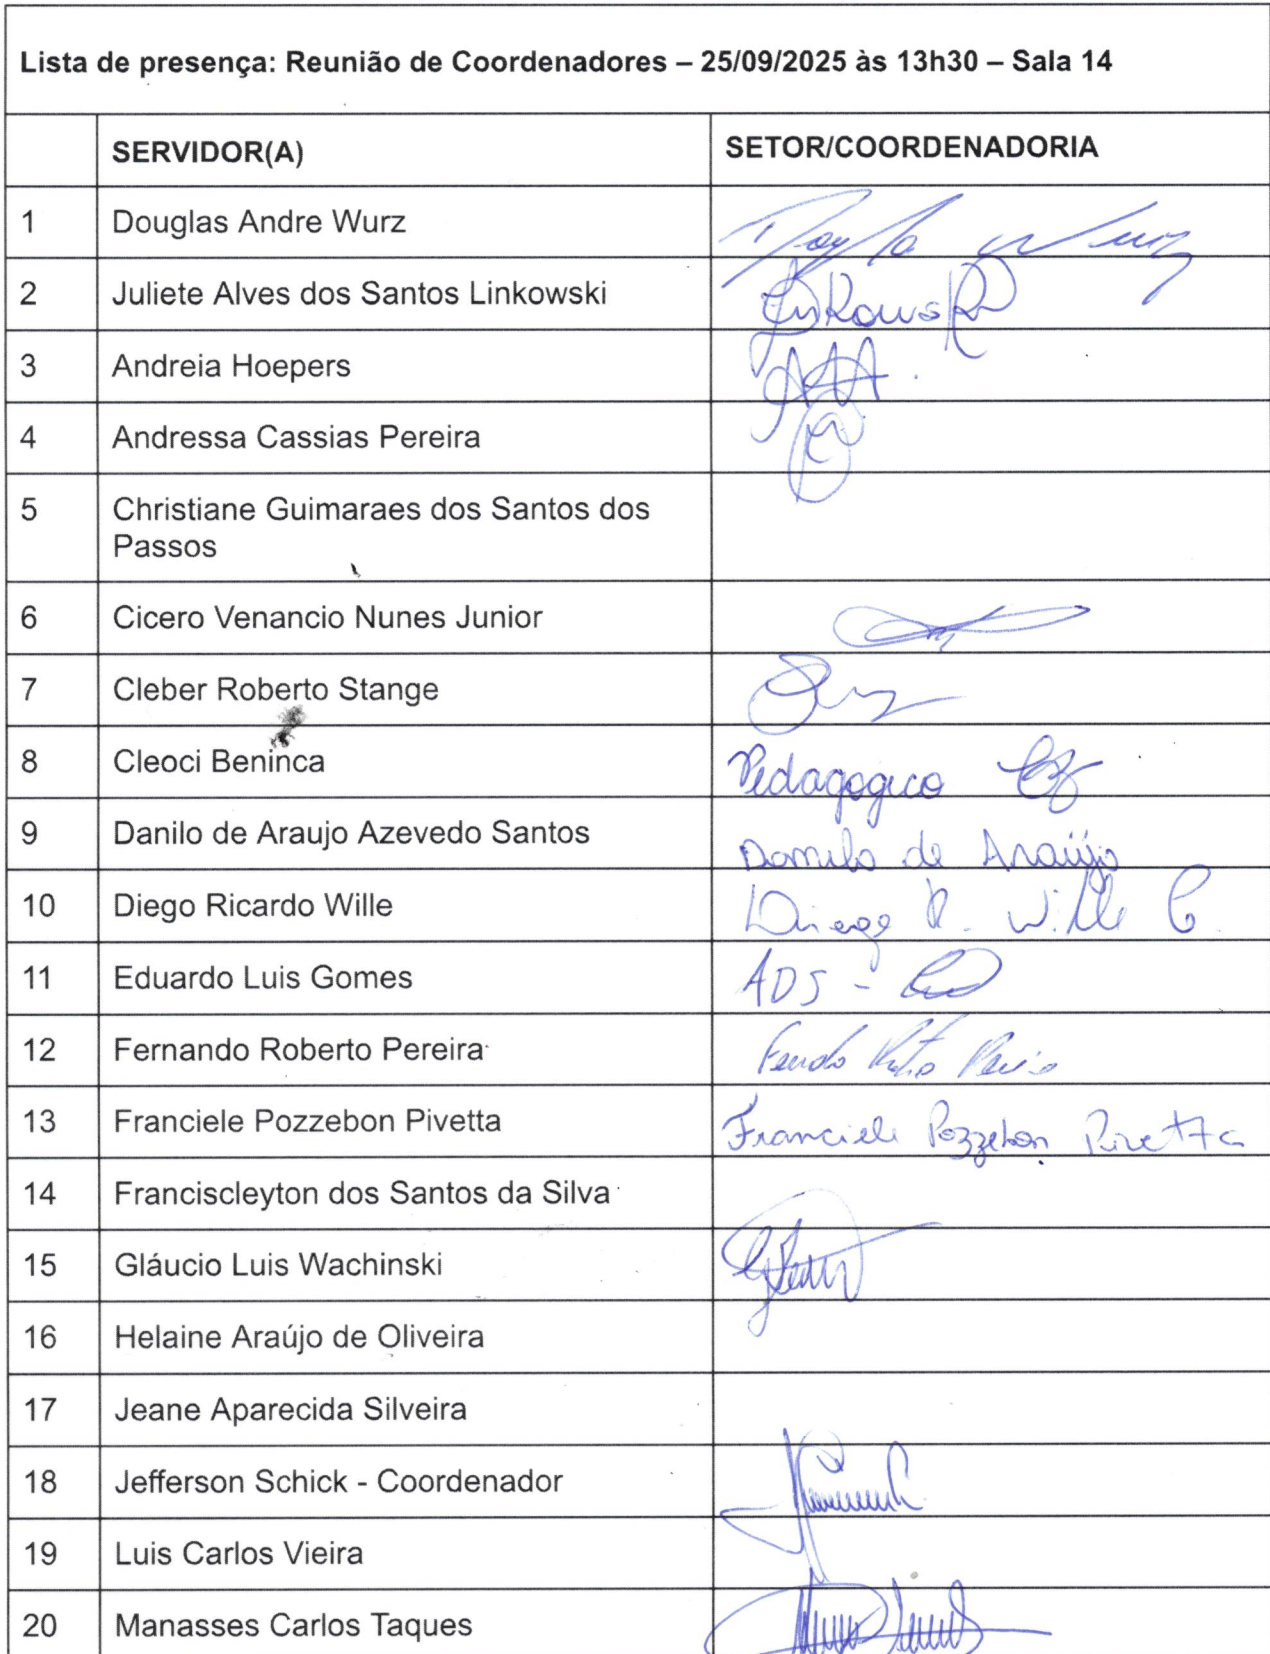 Lista de presença: Reunião de Coordenadores – 25/09/2025 às 13h30 – Sala 14
SERVIDOR(A) SETOR/COORDENADORIA
1 Douglas Andre Wurz
2 Juliete Alves dos Santos Linkowski
3 Andreia Hoepers
4 Andressa Cassias Pereira
5 Christiane Guimaraes dos Santos dos
Passos
6 Cicero Venancio Nunes Junior
7 Cleber Roberto Stange
8 Cleoci Beninca Pedagogico
9 Danilo de Araujo Azevedo Santos Danilo de Araújo
10 Diego Ricardo Wille Diego R. Wille
11 Eduardo Luis Gomes ADS -
12 Fernando Roberto Pereira
13 Franciele Pozzebon Pivetta Franciele Pozzebon Pivetta
14 Franciscleyton dos Santos da Silva
15 Gláucio Luis Wachinski
16 Helaine Araújo de Oliveira
17 Jeane Aparecida Silveira
18 Jefferson Schick - Coordenador
19 Luis Carlos Vieira
20 Manasses Carlos Taques